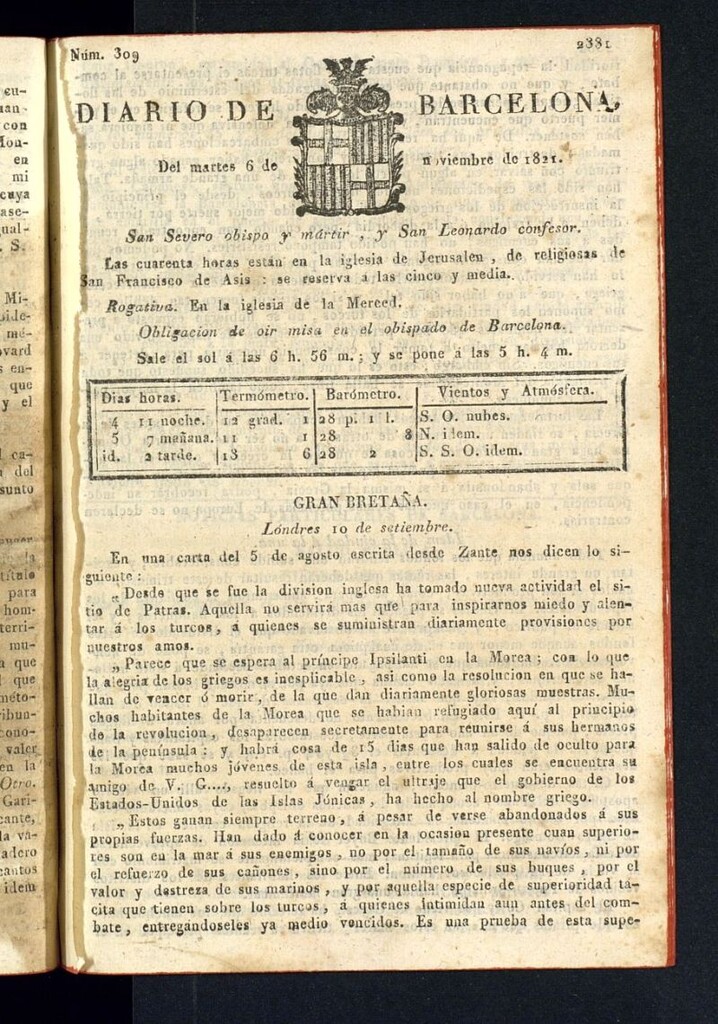 Núm. 309
2381
DIARIO DE BARCELONA,
Del martes 6 de noviembre de 1821.
San Severo obispo y mártir, y San Leonardo confesor.
Las cuarenta horas están en la iglesia de Jerusalen, de religiosas de
San Francisco de Asis: se reserva á las cinco y media.
Rogativa. En la iglesia de la Merced.
Obligacion de oir misa en el obispado de Barcelona.
Sale el sol á las 6 h. 56 m.; y se pone á las 5 h. 4 m.
Dias horas. Termómetro. Barómetro. Vientos y Atmósfera.
4 11 noche. 12 grad. 1 28 p. 1 l. S. O. nubes.
5 7 mañana. 11 1 28 8 N. idem.
id. 2 tarde. 13 6 28 2 S. S. O. idem.
GRAN BRETAÑA.
Lóndres 10 de setiembre.
En una carta del 5 de agosto escrita desde Zante nos dicen lo si-
guiente:
„Desde que se fue la division inglesa ha tomado nueva actividad el si-
tio de Patras. Aquella no servirá mas que para inspirarnos miedo y alen-
tar á los turcos, á quienes se suministran diariamente provisiones por
nuestros amos.
„Parece que se espera al príncipe Ipsilanti en la Morea; con lo que
la alegria de los griegos es inesplicable, asi como la resolucion en que se ha-
llan de vencer ó morir, de la que dan diariamente gloriosas muestras. Mu-
chos habitantes de la Morea que se habian refugiado aquí al principio
de la revolucion, desaparecen secretamente para reunirse á sus hermanos
de la península: y habrá cosa de 15 dias que han salido de oculto para
la Morea muchos jóvenes de esta isla, entre los cuales se encuentra su
amigo de V. G...., resuelto á vengar el ultraje que el gobierno de los
Estados-Unidos de las Islas Jónicas, ha hecho al nombre griego.
„Estos ganan siempre terreno, á pesar de verse abandonados á sus
propias fuerzas. Han dado á conocer en la ocasion presente cuan superio-
res son en la mar á sus enemigos, no por el tamaño de sus navíos, ni por
el refuerzo de sus cañones, sino por el número de sus buques, por el
valor y destreza de sus marinos, y por aquella especie de superioridad tá-
cita que tienen sobre los turcos, á quienes intimidan aun antes del com-
bate, entregándoseles ya medio vencidos. Es una prueba de esta supe-